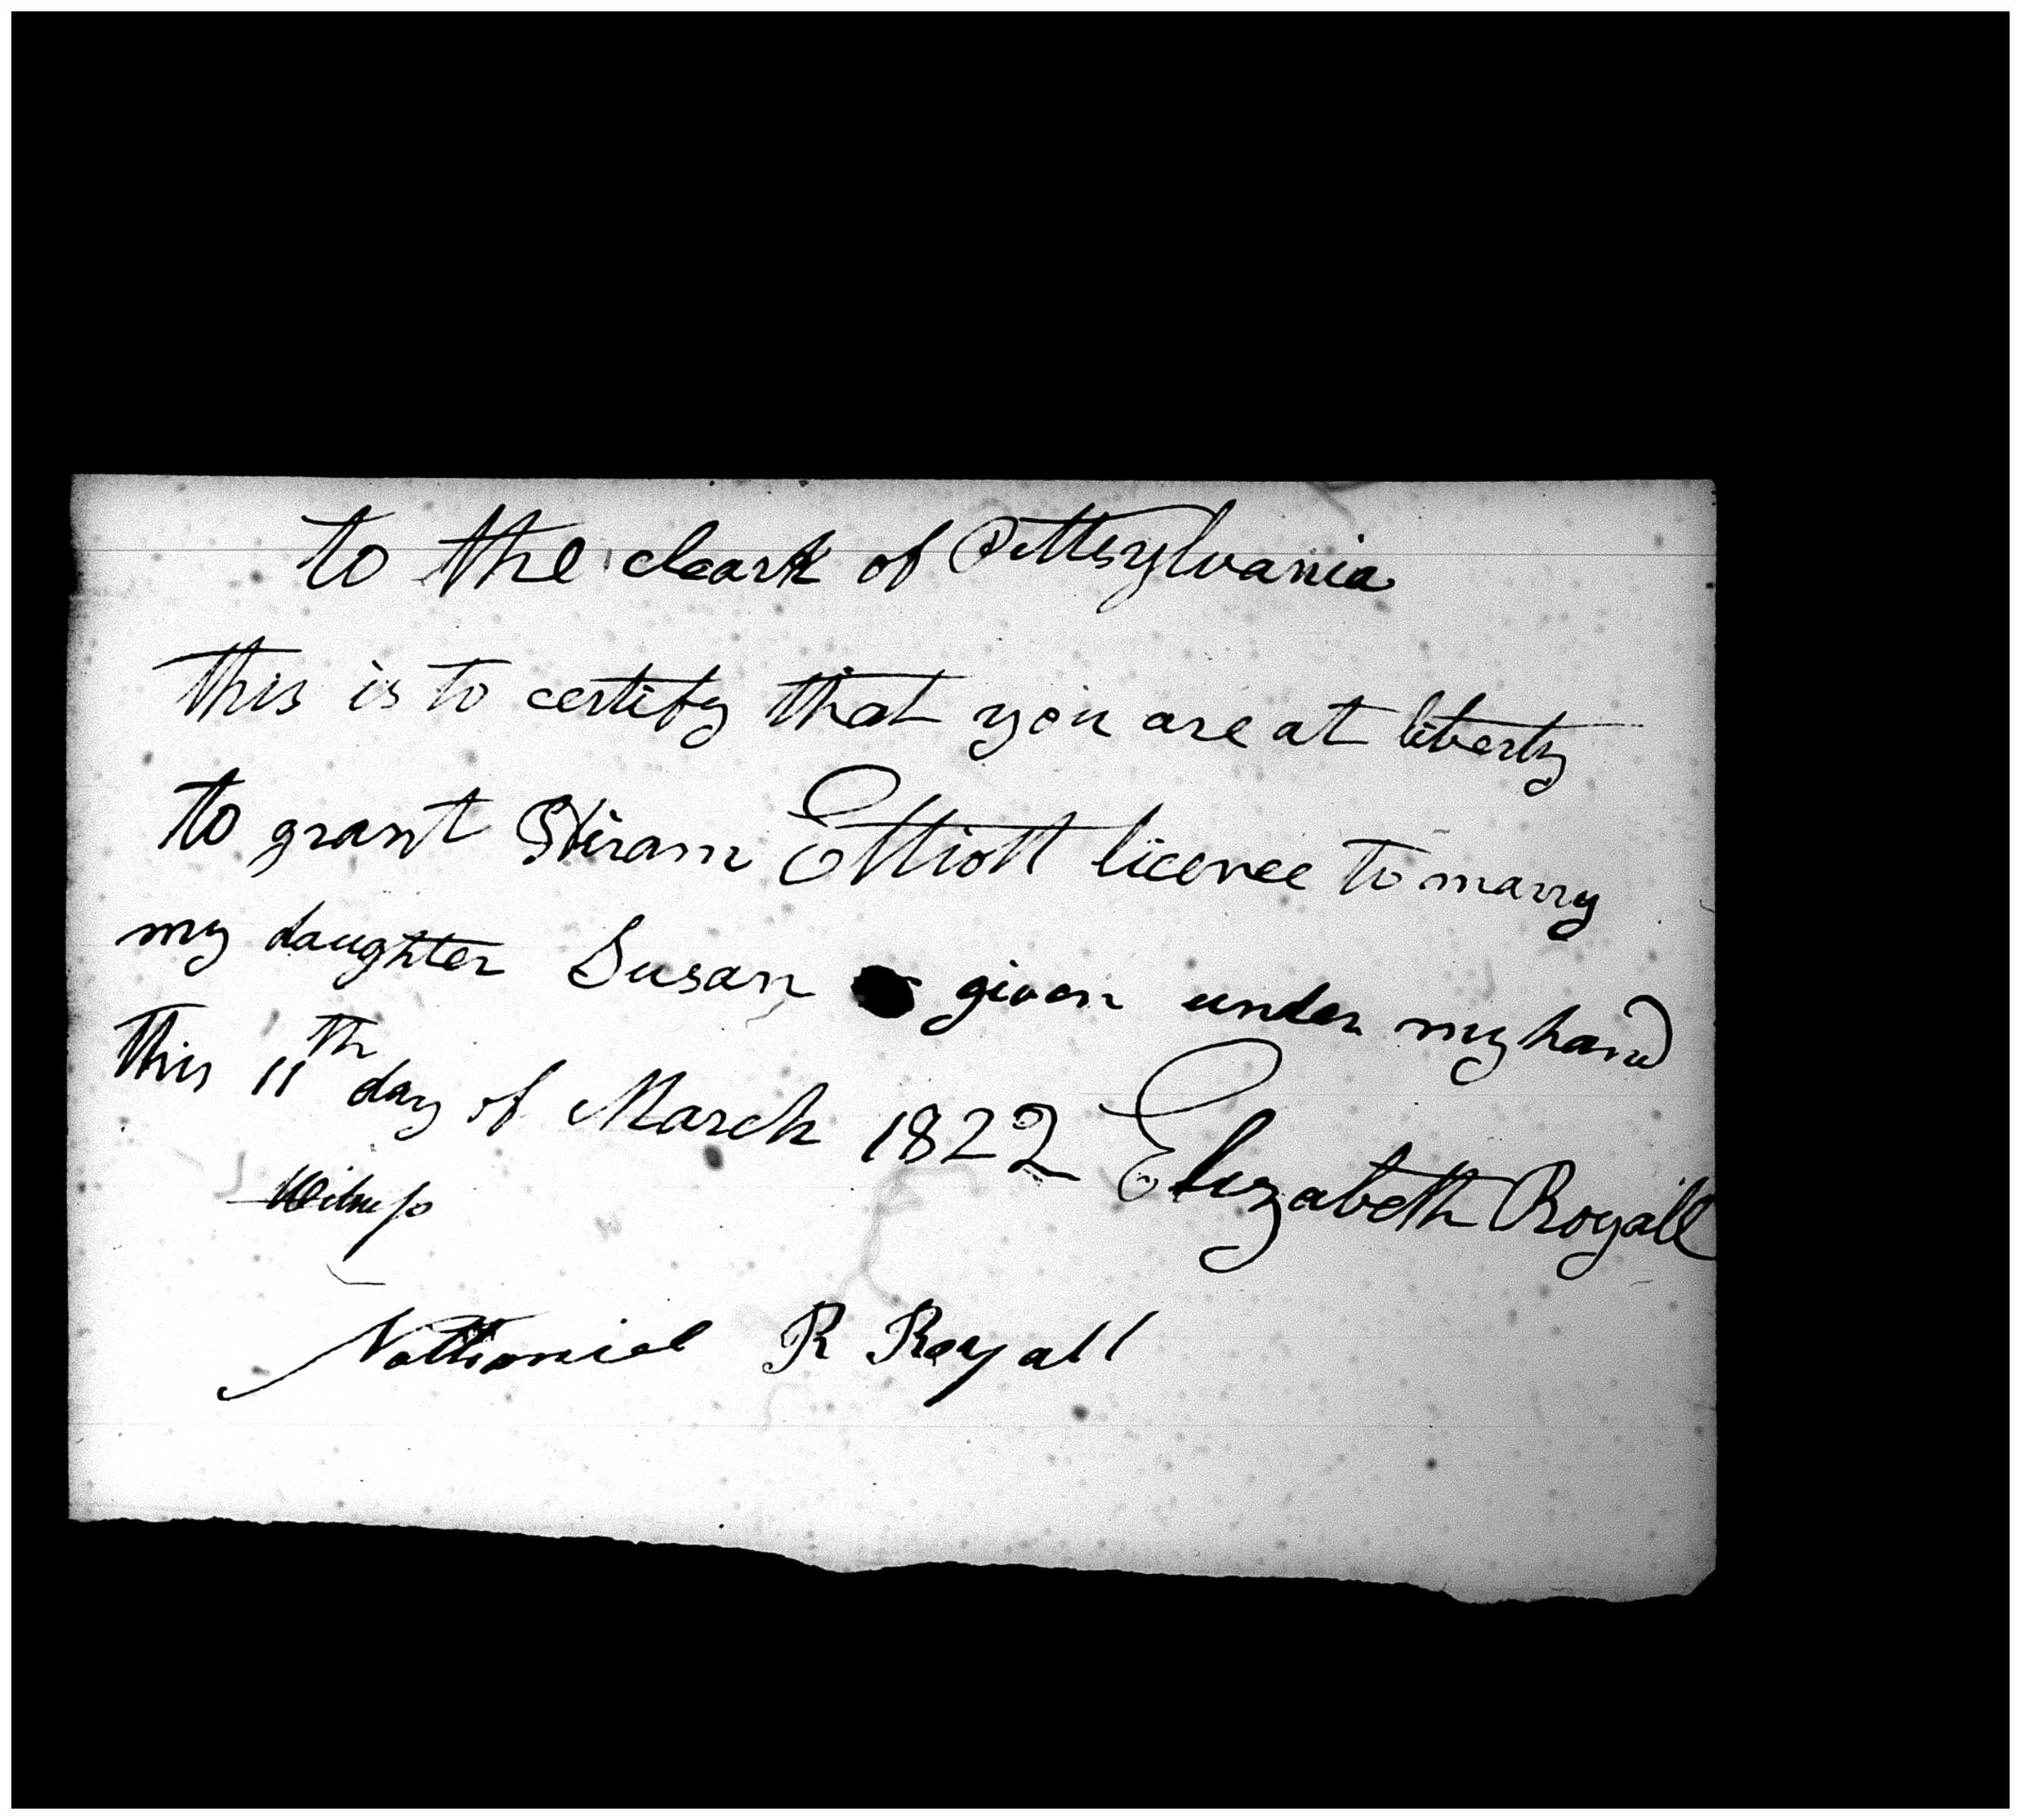 to the cleark of Pittsylvania
this is to certify that you are at liberty
to grant Hiram Elliott licence to marry
my daughter Susan given under my hand
this 11th day of March 1822 Elizabeth Royall
Witness
Nathaniel R Royall